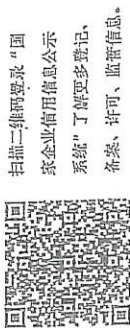 扫描二维码登录“国
家企业信用信息公示
系统”了解更多登记、
备案、许可、监管信息。